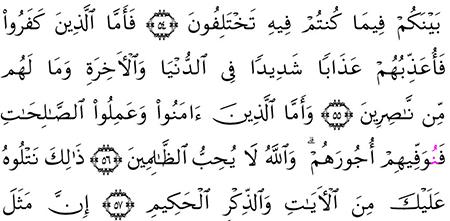 بَيْنَكُمْ فِيمَا كُنتُمْ فِيهِ تَخْتَلِفُونَ ۝٥٤ فَأَمَّا ٱلَّذِينَ كَفَرُوا۟
فَأُعَذِّبُهُمْ عَذَابًا شَدِيدًا فِى ٱلدُّنْيَا وَٱلْأَخِرَةِ وَمَا لَهُم
مِّن نَّاصِرِينَ ۝٥٥ وَأَمَّا ٱلَّذِينَ ءَامَنُوا۟ وَعَمِلُوا۟ ٱلصَّـٰلِحَـٰتِ
فَنُوَفِّيهِمْ أُجُورَهُمْ ۗ وَٱللَّهُ لَا يُحِبُّ ٱلظَّـٰلِمِينَ ۝٥٦ ذَٰلِكَ نَتْلُوهُ
عَلَيْكَ مِنَ ٱلْأَيَـٰتِ وَٱلذِّكْرِ ٱلْحَكِيمِ ۝٥٧ إِنَّ مَثَلَ